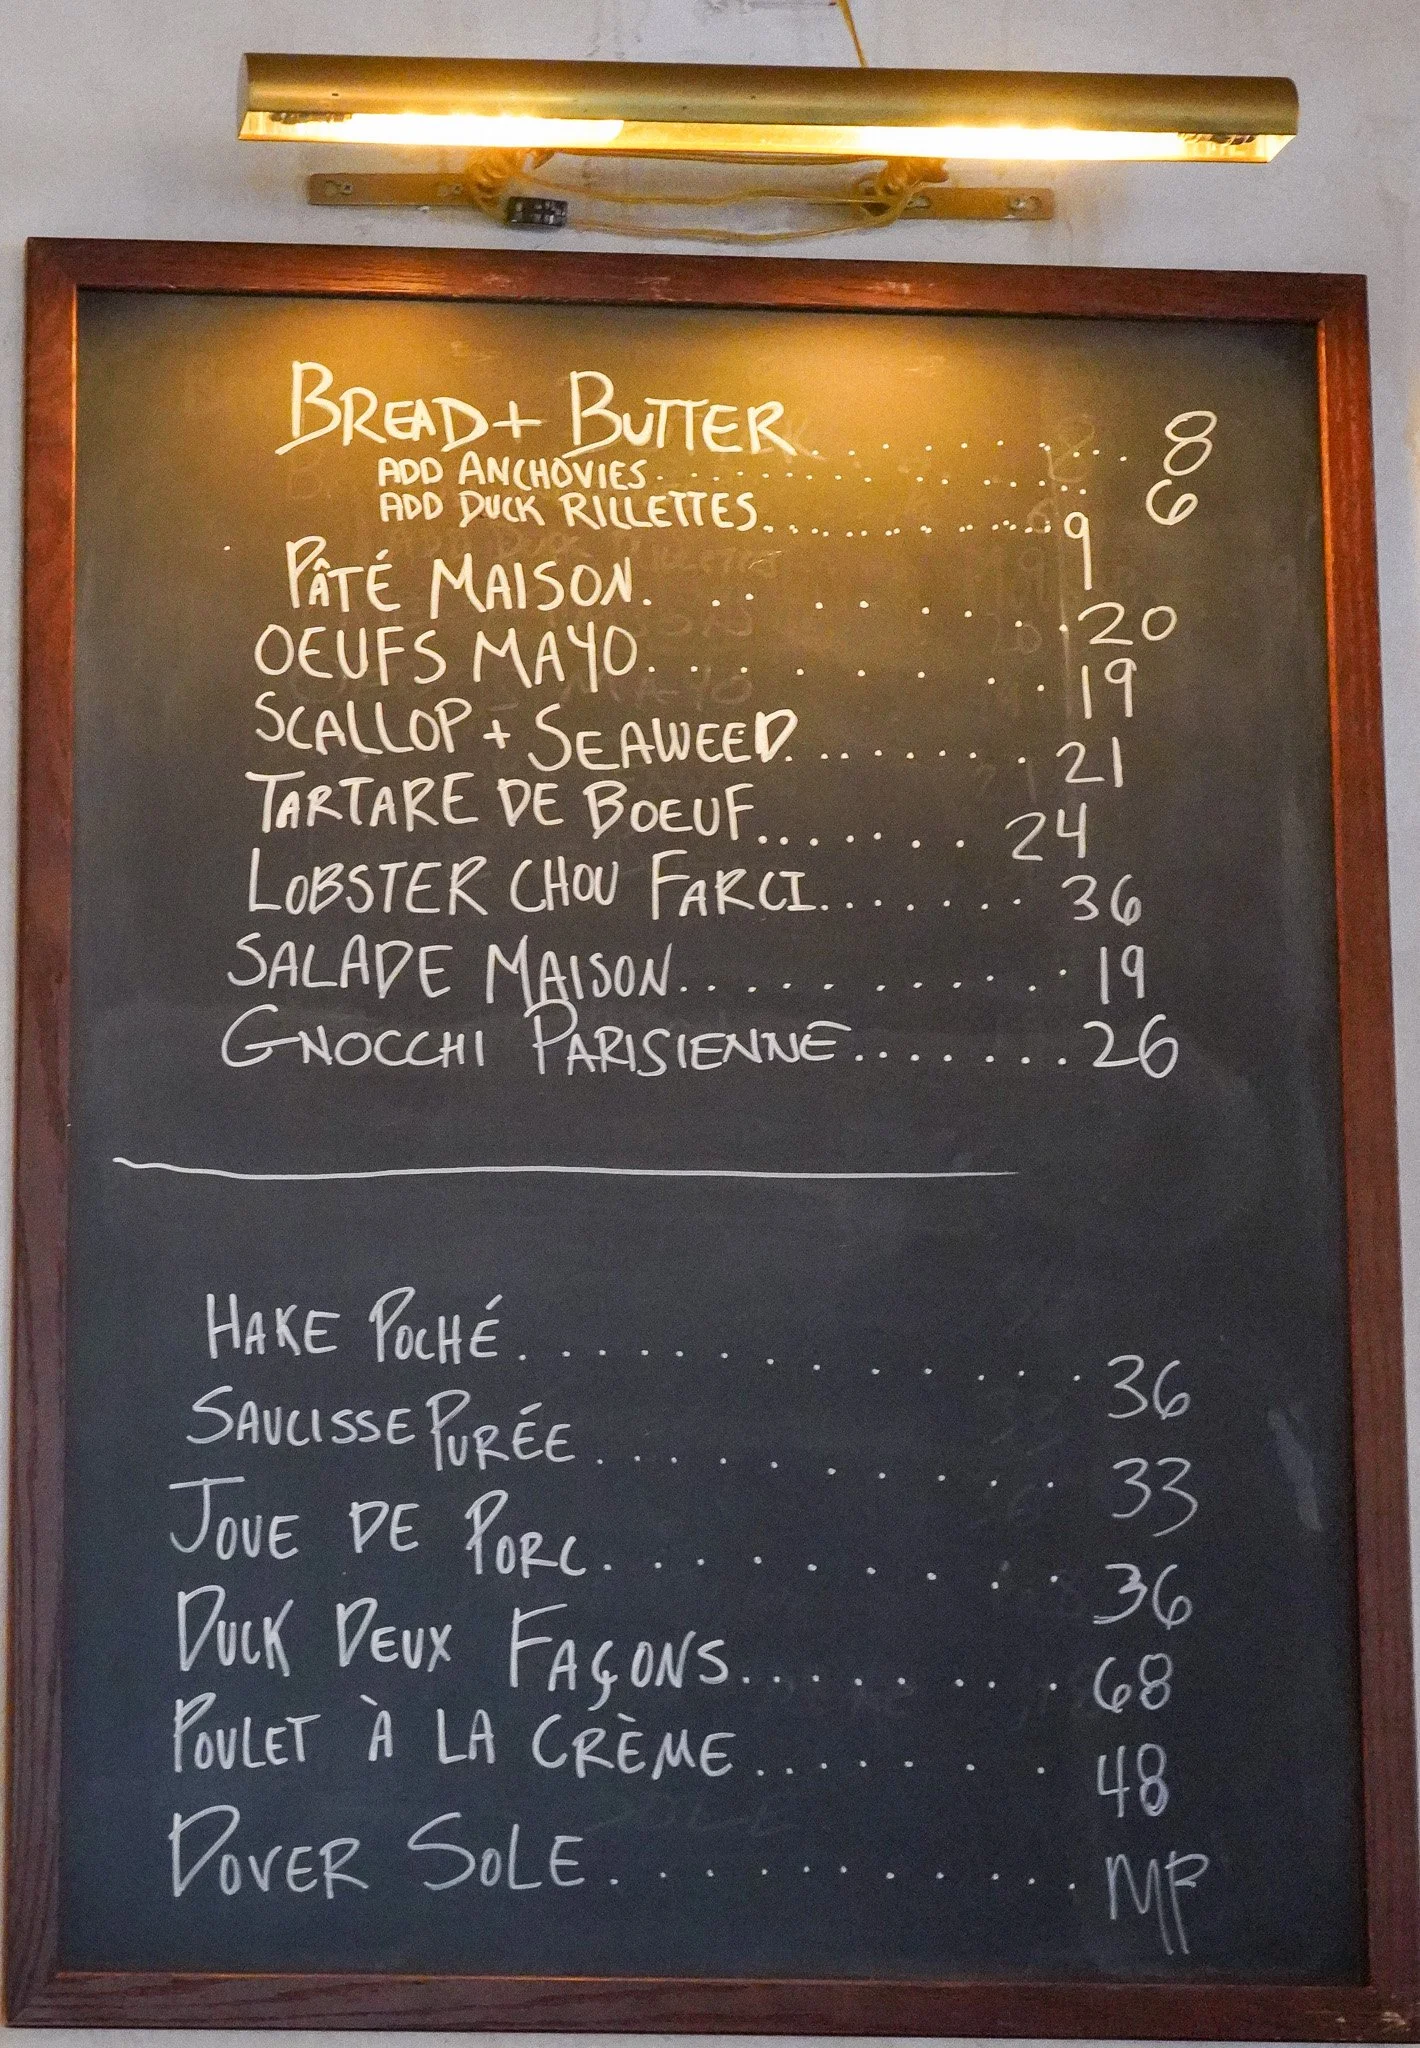 BREAD + BUTTER.................. 8
ADD ANCHOVIES.................. 6
ADD DUCK RILLETTES.................. 9
PÂTÉ MAISON......... 20
OEUFS MAYO......... 19
SCALLOP + SEAWEED........ 21
TARTARE DE BOEUF........ 24
LOBSTER CHOU FARCI....... 36
SALADE MAISON.......... 19
GNOCCHI PARISIENNE........ 26
HAKE POCHÉ............. 36
SAUCISSE PURÉE........... 33
JOUE DE PORC......... 36
DUCK DEUX FAÇONS......... 68
POULET À LA CRÈME....... 48
DOVER SOLE........... MP